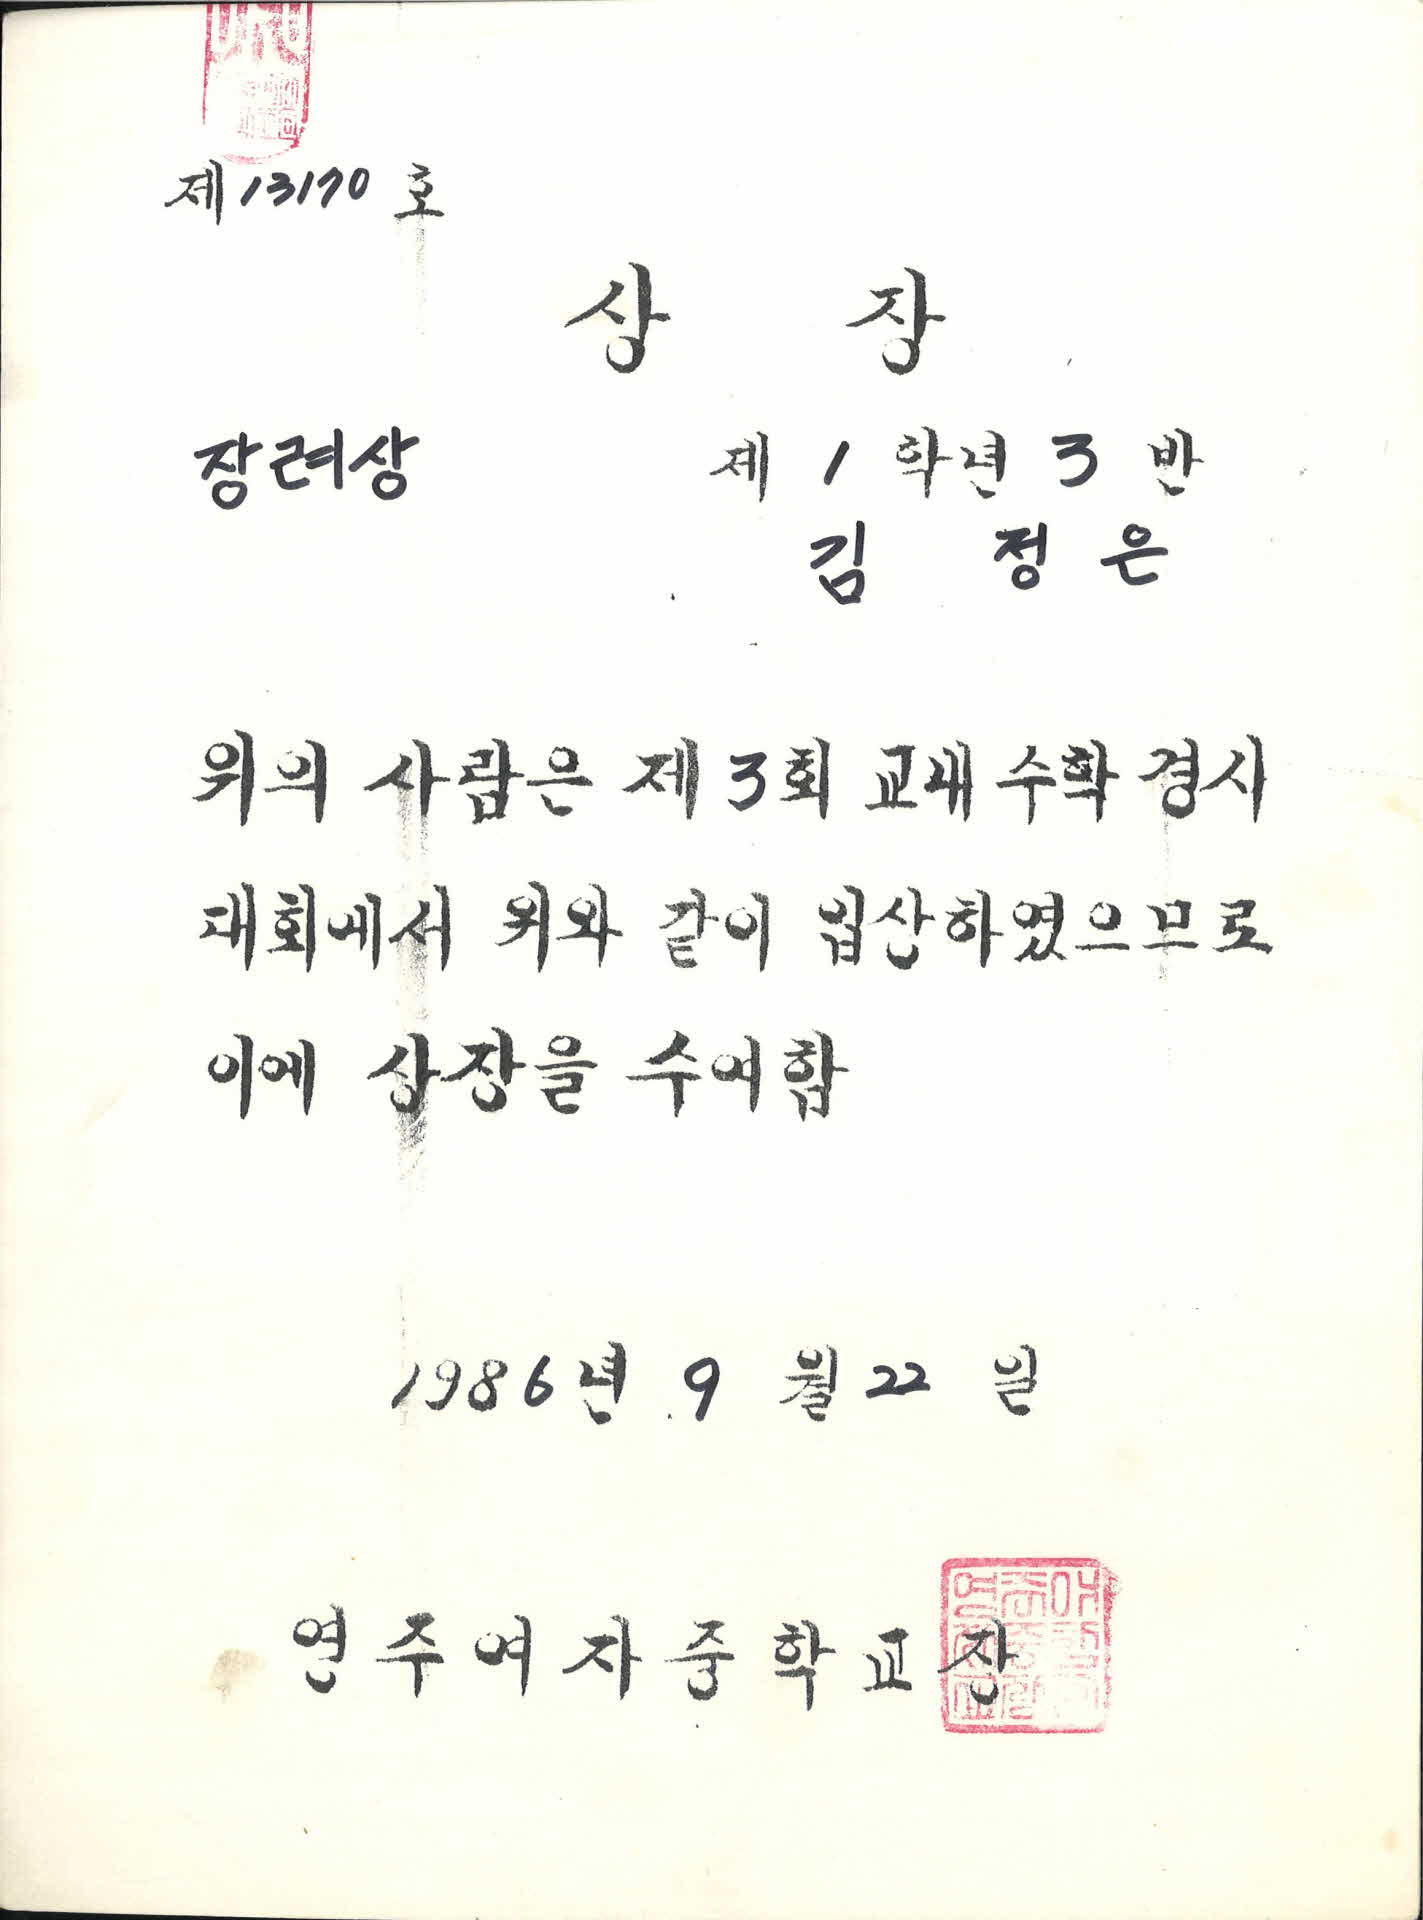 제 13170 호
상 장
장려상 제 1 학년 3 반
김 정 은
위의 사람은 제 3회 교내 수학 경시
대회에서 위와 같이 입상하였으므로
이에 상장을 수여함
1986년 9 월 22 일
연주여자중학교장